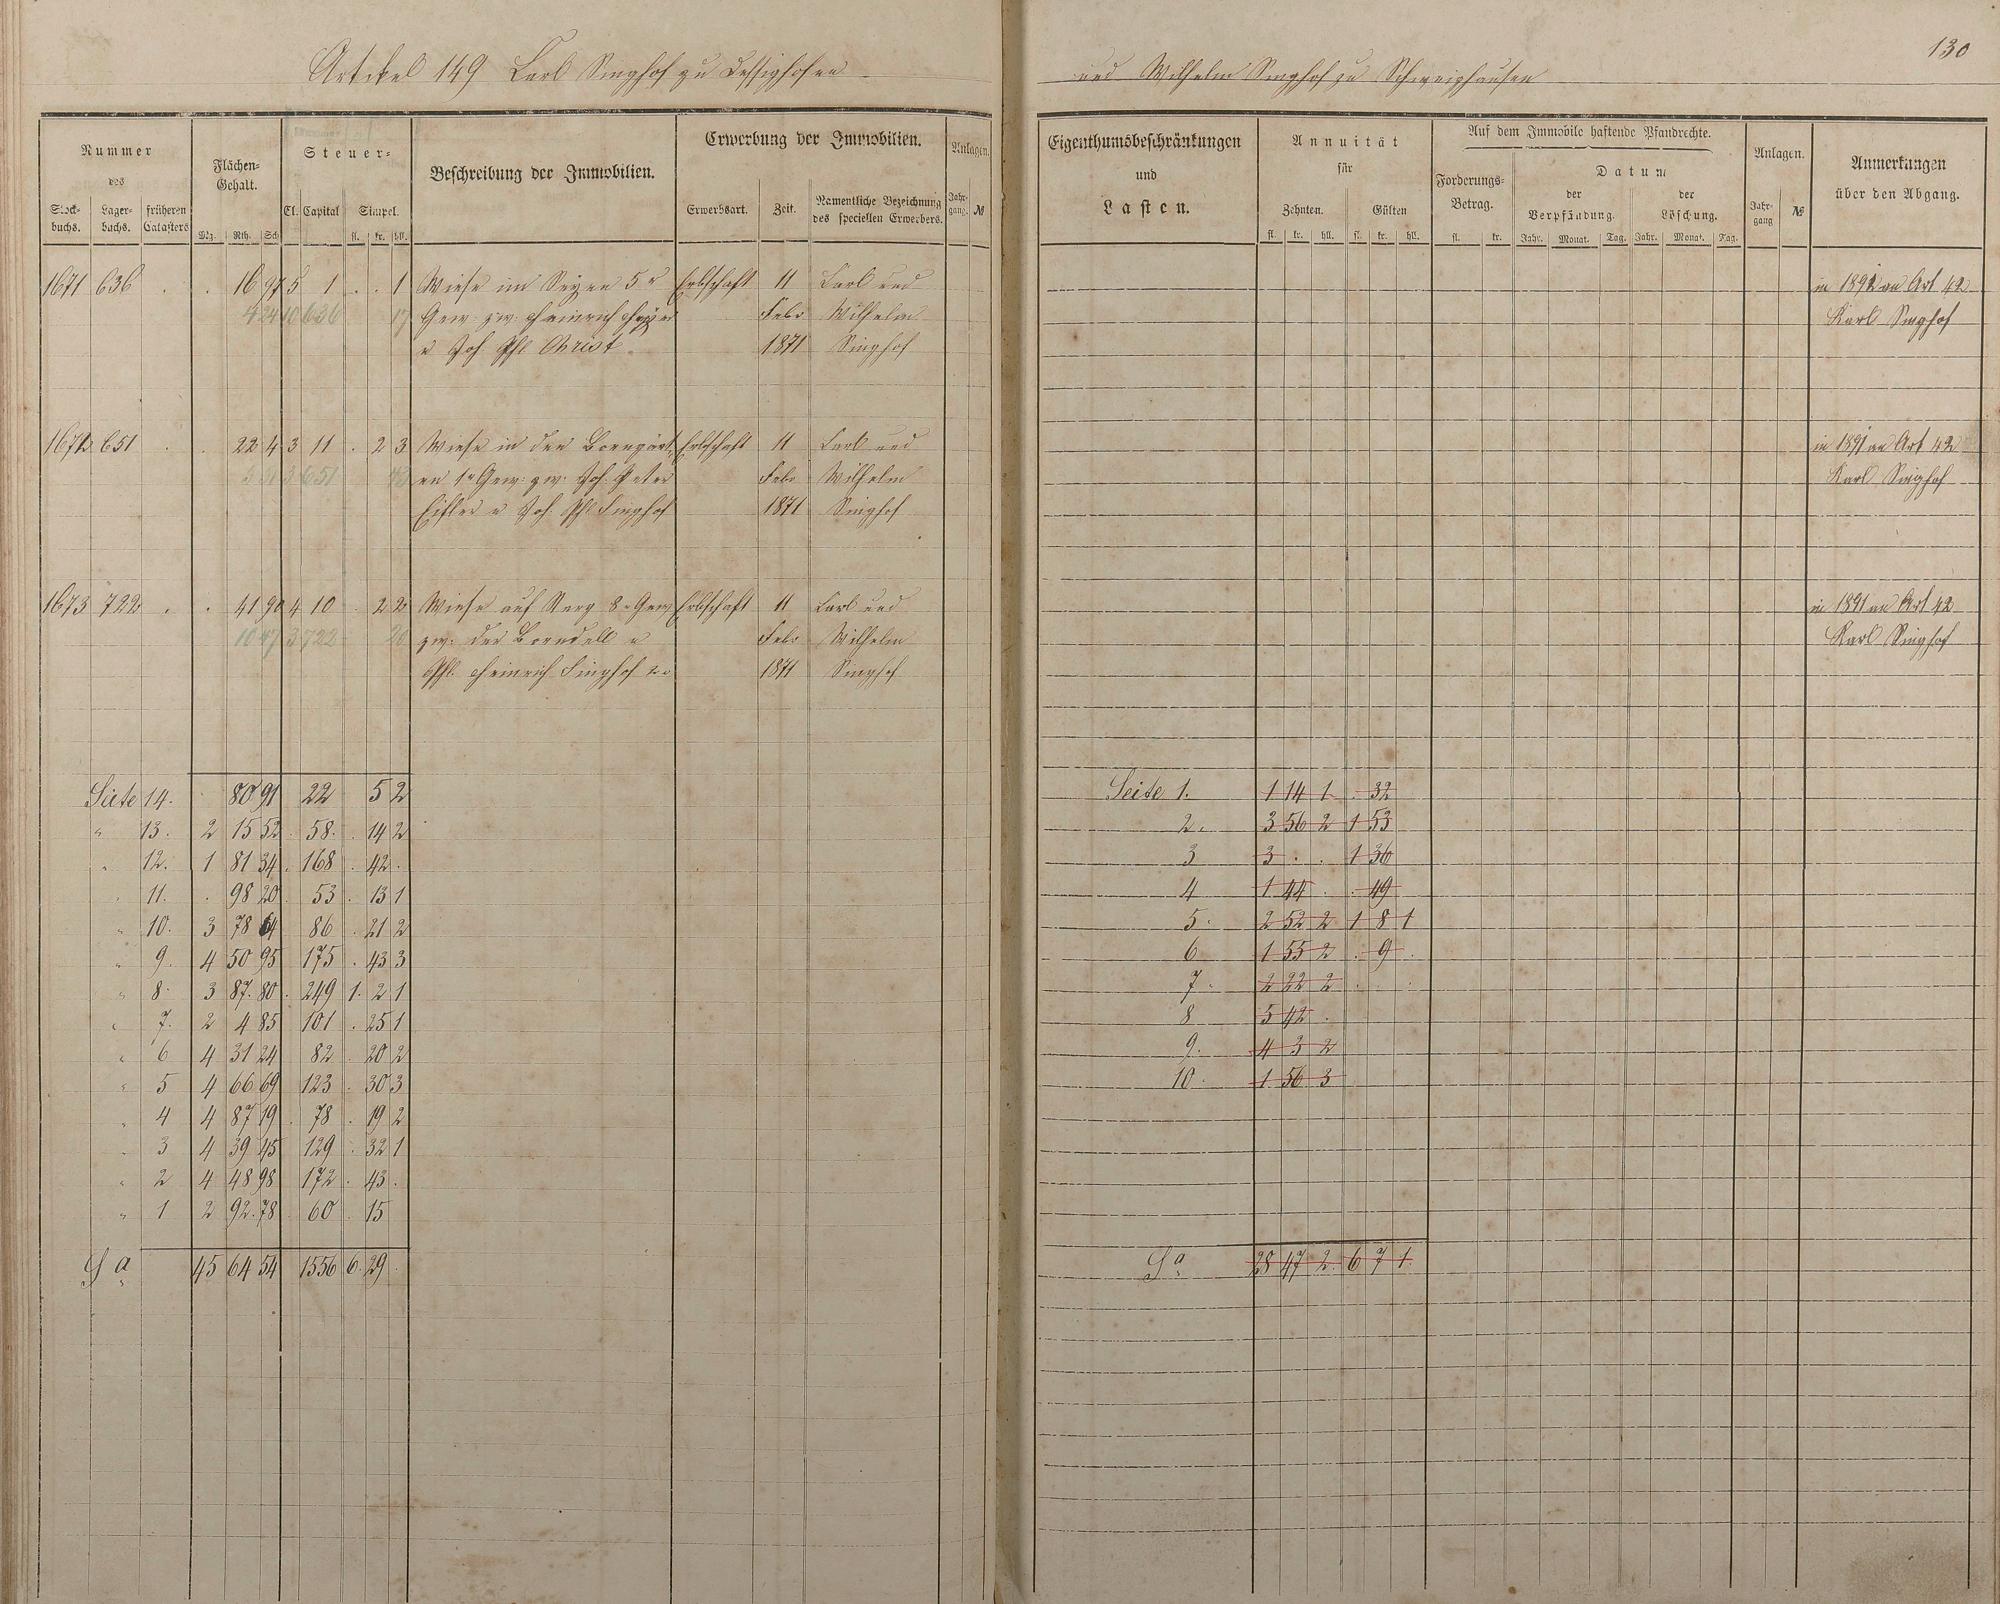 130
Artikel 149 Carl Singhof zu Dessighofen
und Wilhelm Singhof zu Schweighausen
Nummer
des
Stock-
buchs.
Lager-
buchs.
früheren
Catasters
Flächen-
Gehalt.
Mg. Rth. Sch.
Steuer-
Cl. Capital Simpel.
fl. kr. hll.
Beschreibung der Immobilien.
Erwerbung der Immobilien.
Erwerbsart. Zeit.
Namentliche Bezeichnung
des speciellen Erwerbers.
Anlagen.
Jahr-
gang. №
Eigenthumsbeschränkungen
und
Lasten.
Annuität
für
Zehnten. Gülten
fl. kr. hll. fl. kr. hll.
Auf dem Immobile haftende Pfandrechte.
Forderungs-
Betrag.
fl. kr.
Datum
der
Verpfändung.
Jahr. Monat. Tag.
der
Löschung.
Jahr. Monat. Tag.
Anlagen.
Jahr-
gang №
Anmerkungen
über den Abgang.
1671 636 . . 16 97 5 1 . . 1 Wiese im 5r Erbschaft 11 Carl und
4 24 10 636 17 Gew zw. Heinrich Febr Wilhelm
u Joh Phl Christ 1871 Singhof
in 1891 an Art 42
Karl Singhof
1672 651 . . 22 4 3 11 . 2 3 Wiese in den Borngärt- Erbschaft 11 Carl und
3 651 en 1r Gew: zw: Joh. Peter Febr Wilhelm
Eisler u Joh. Phl Singhof 1871 Singhof
in 1891 an Art 42
Karl Singhof
1673 722 . . 41 90 4 10 . 2 2 Wiese auf 8r Gew Erbschaft 11 Carl und
10 47 3 722 20 zw: der Borndell u Febr Wilhelm
Phl. Heinrich Singhof 1871 Singhof
in 1891 an Art 42
Karl Singhof
Seite 14. . 80 91 22 5 2
" 13. 2 15 52 . 58. . 14 2
" 12. 1 81 34 . 168 . 42 .
" 11. . 98 20 . 53 . 13 1
" 10. 3 78 64 86 . 21 2
" 9. 4 50 95 175 . 43 3
" 8. 3 87. 80 . 249 1. 2 1
" 7. 2 4 85 101 . 25 1
" 6 4 31 24 82 . 20 2
" 5 4 66 69 123 . 30 3
" 4 4 87 19 . 78 . 19 2
" 3 4 39 45 129 . 32 1
" 2 4 48 98 172 . 43 .
" 1 2 92. 78 60 . 15
Sa 45 64 54 1556 6. 29 .
Seite 1. 1 14 1 . 32
2. 3 56 2 1 53
3 3 . . 1 36
4 1 44 . . 49
5. 2 52 2 1 8 1
6 1 55 2 . 9 .
7. 2 22 2 . . .
8 5 42 .
9. 4 3 2
10. 1 56 3
Sa 28 47 2. 6 7 1.